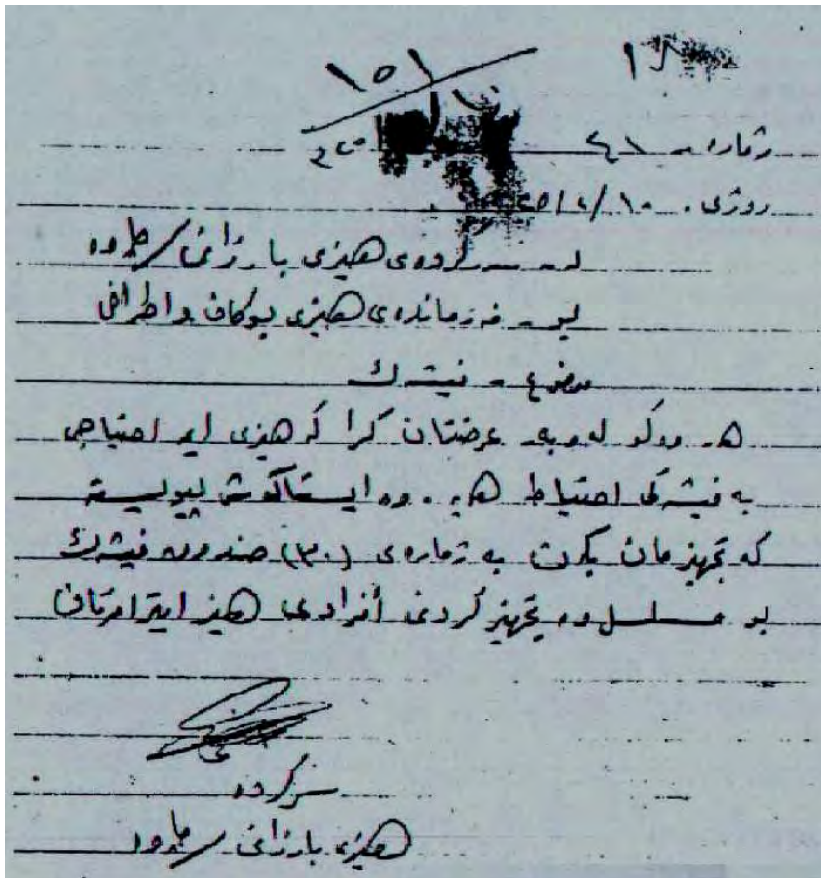 ١٥١
ژمارە - ٤١
روژی . ١٠/
لە - سەرکردەی هیزی بارزانی /
بو - فەرماندەی هیزی بوکان و اطرافی
موضوع - فیشەك
هەروەکو لەوە بەر عرضتان کرا کە هیزی ایمە احتیاجی
بە فیشەکی احتیاط هەیە . وە ایستاکوش پیویستە
کە تجهیزمان بکەن بە ژمارەی (٣٠) صندوقە فیشەك
بو مسلسل وە تجهیز کردنی أفرادی هیز
سرکردە
هیزی بارزانی /